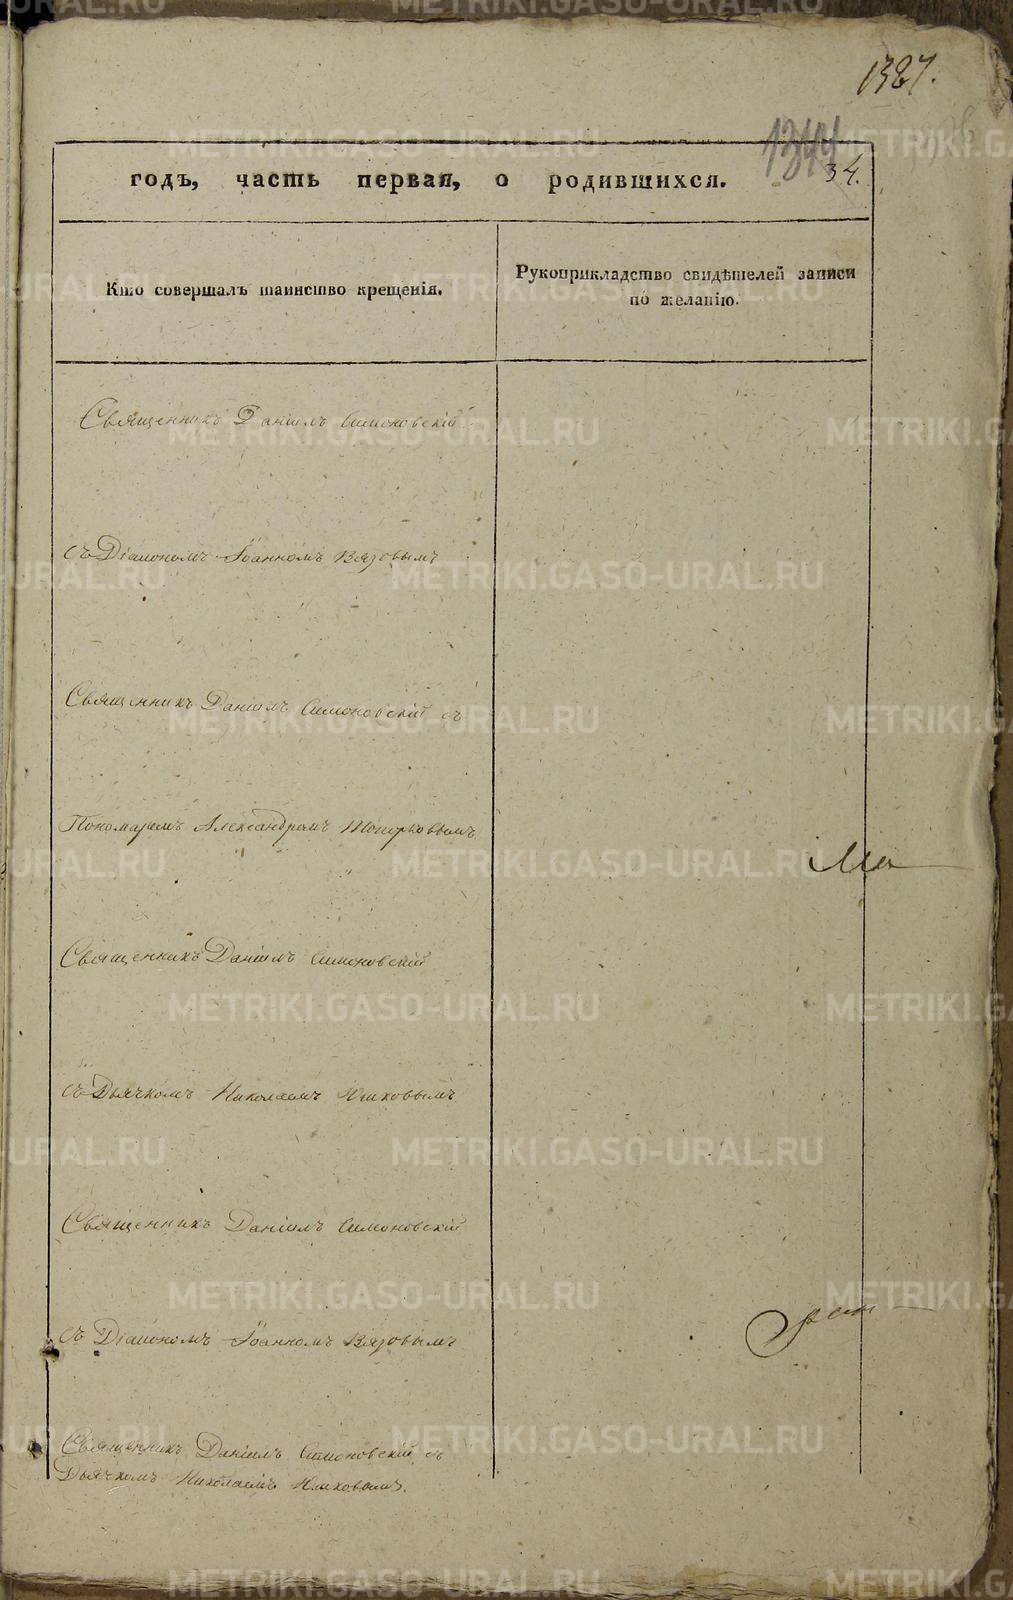 1327.
1344
34.
годъ, часть первая, о родившихся.
Кто совершалъ таинство крещенія.
Рукоприкладство свидѣтелей записи
по желанію.
Священникъ Даніилъ Симоновскій
съ Діакономъ Іоанномъ Вязовымъ
Священникъ Даніилъ Симоновскій съ
Пономаремъ Александромъ Топорковымъ
Священникъ Даніилъ Симоновскій
съ Дьячкомъ Николаемъ
Священникъ Даніилъ Симоновскій
съ Діакономъ Іоанномъ Вязовымъ
Священникъ Даніилъ Симоновскій съ
Дьячкомъ Николаемъ
METRIKI.GASO-URAL.RU